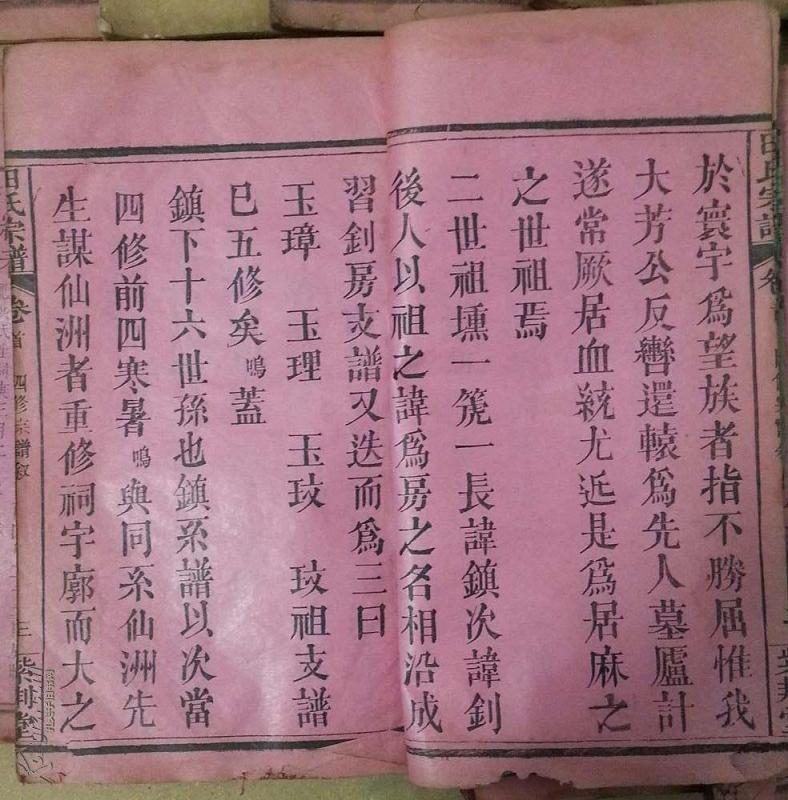 於寰宇爲望族者指不勝屈惟我
大芳公反轡還轅爲先人墓廬計
遂常厥居血統尤近是爲居麻之
之世祖焉
二世祖壎一箎一長諱鎮次諱釗
後人以祖之諱爲房之名相沿成
習釗房支譜又迭而爲三曰
玉璋 玉理 玉玟 玟祖支譜
巳五修矣鳴蓋
鎮下十六世孫也鎮系譜以次當
四修前四寒暑鳴與同系仙洲先
生謀仙洲者重修祠宇廓而大之
田氏宗譜 卷首 四修宗譜敘 三 紫荆堂
田氏宗譜